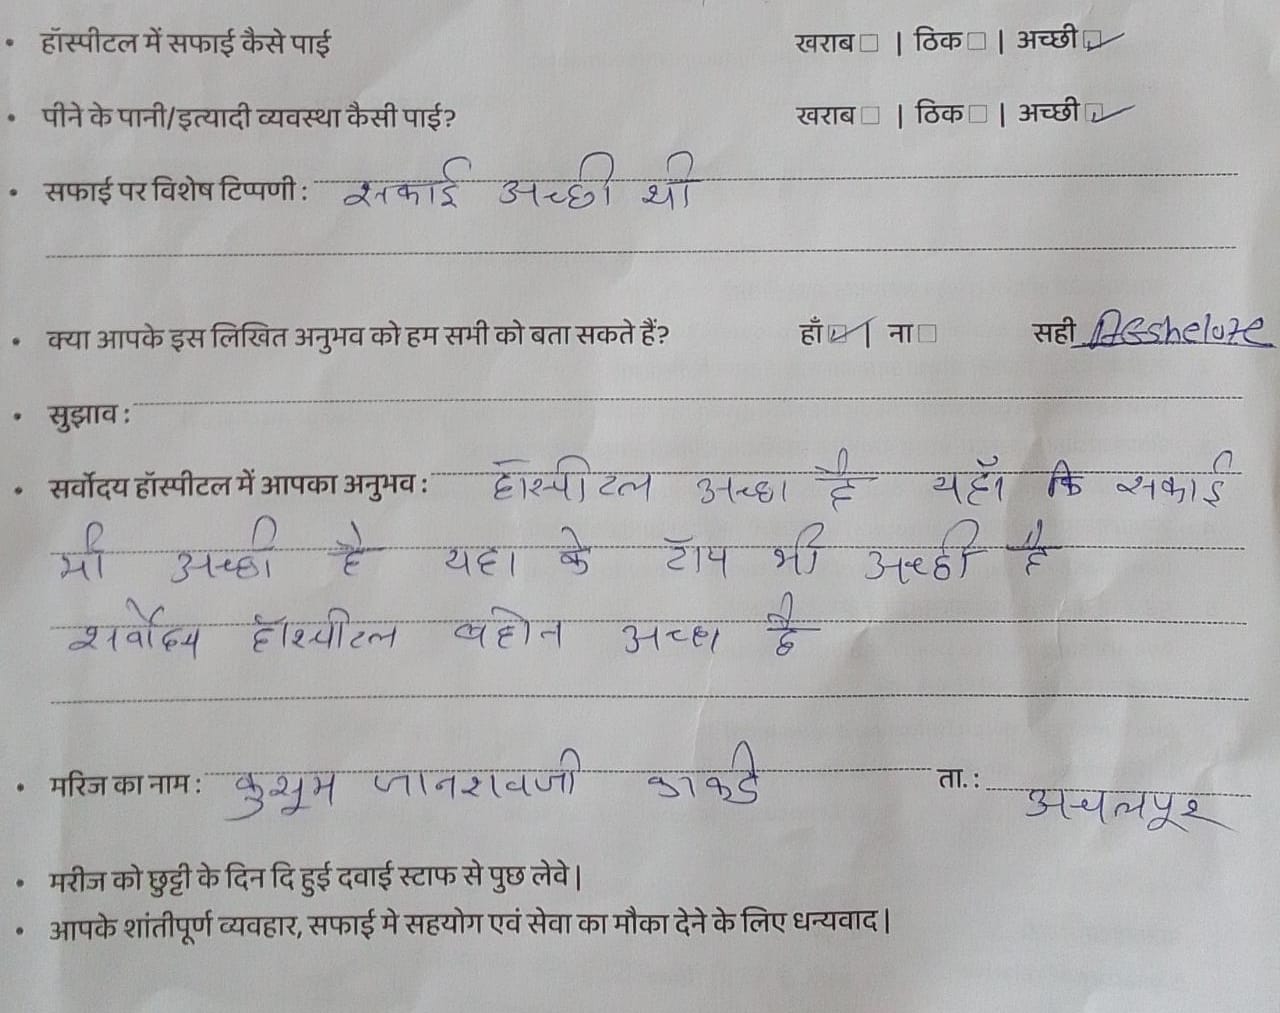 • हॉस्पीटल में सफाई कैसे पाई खराब □ | ठिक □ | अच्छी ☑
• पीने के पानी/इत्यादी व्यवस्था कैसी पाई? खराब □ | ठिक □ | अच्छी ☑
• सफाई पर विशेष टिप्पणी : सफाई अच्छी थी
• क्या आपके इस लिखित अनुभव को हम सभी को बता सकते हैं? हाँ ☑ | ना □ सही
• सुझाव :
• सर्वोदय हॉस्पीटल में आपका अनुभव : हॉस्पीटल अच्छा है यहाँ कि सफाई
भी अच्छी है यहा के भी अच्छी है
सर्वोदय हॉस्पीटल बहोत अच्छा है
• मरिज का नाम : कुसूम जानरावजी काकडे ता. : अचलपूर
• मरीज को छुट्टी के दिन दि हुई दवाई स्टाफ से पुछ लेवे |
• आपके शांतीपूर्ण व्यवहार, सफाई मे सहयोग एवं सेवा का मौका देने के लिए धन्यवाद |